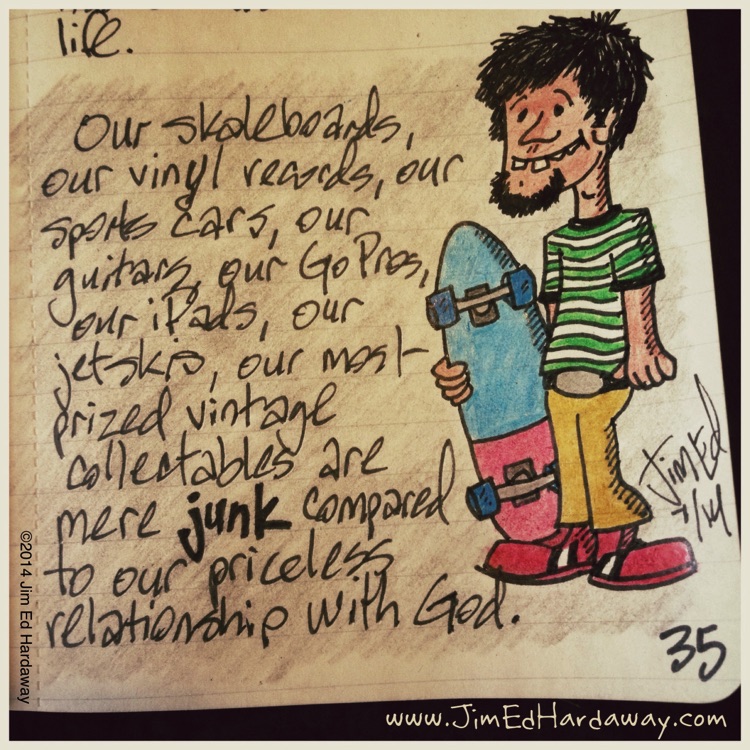 life.
Our skateboards,
our vinyl records, our
sports cars, our
guitars, our GoPros,
our iPads, our
jetskis, our most-
prized vintage
collectables are
mere junk compared
to our priceless
relationship with God.
Jim Ed
7/14
35
©2014 Jim Ed Hardaway
www.JimEdHardaway.com